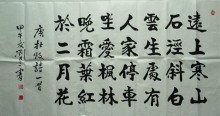 遠上寒山
石徑斜白
雲生處有
人家停車
坐愛楓林
晚霜葉紅
於二月花
唐杜牧詩一首
甲午
書